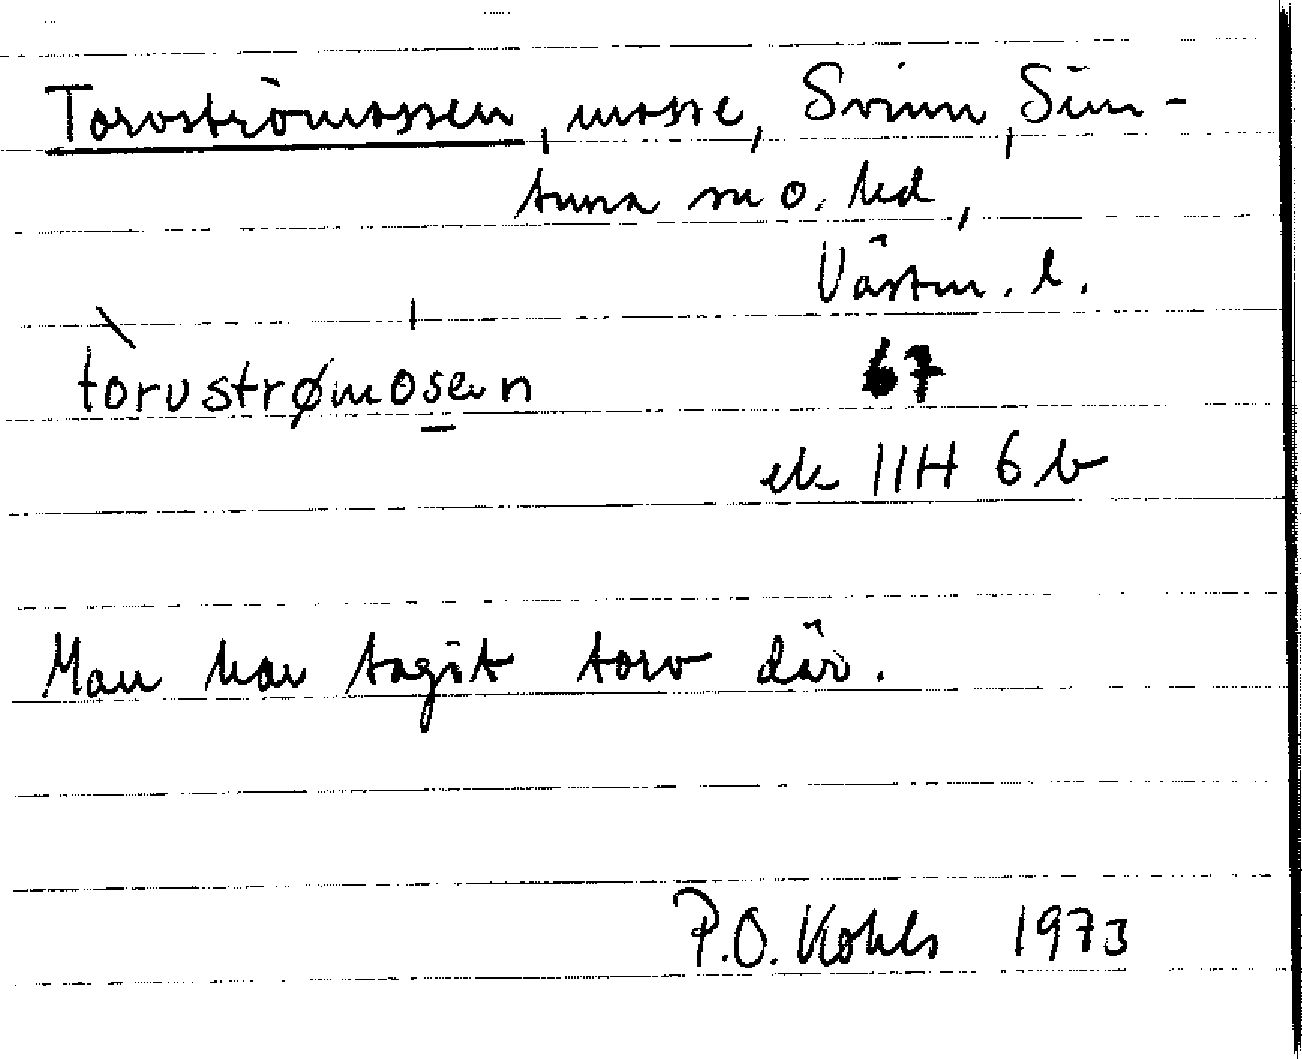 Torvströmossen, mosse, Svinn, Sim-
tuna sn o. hd,
Västm. l.
tòrvstrømosen 67
ek 11H 6 b
Man har tagit torv där.
P.O. Kohls 1973